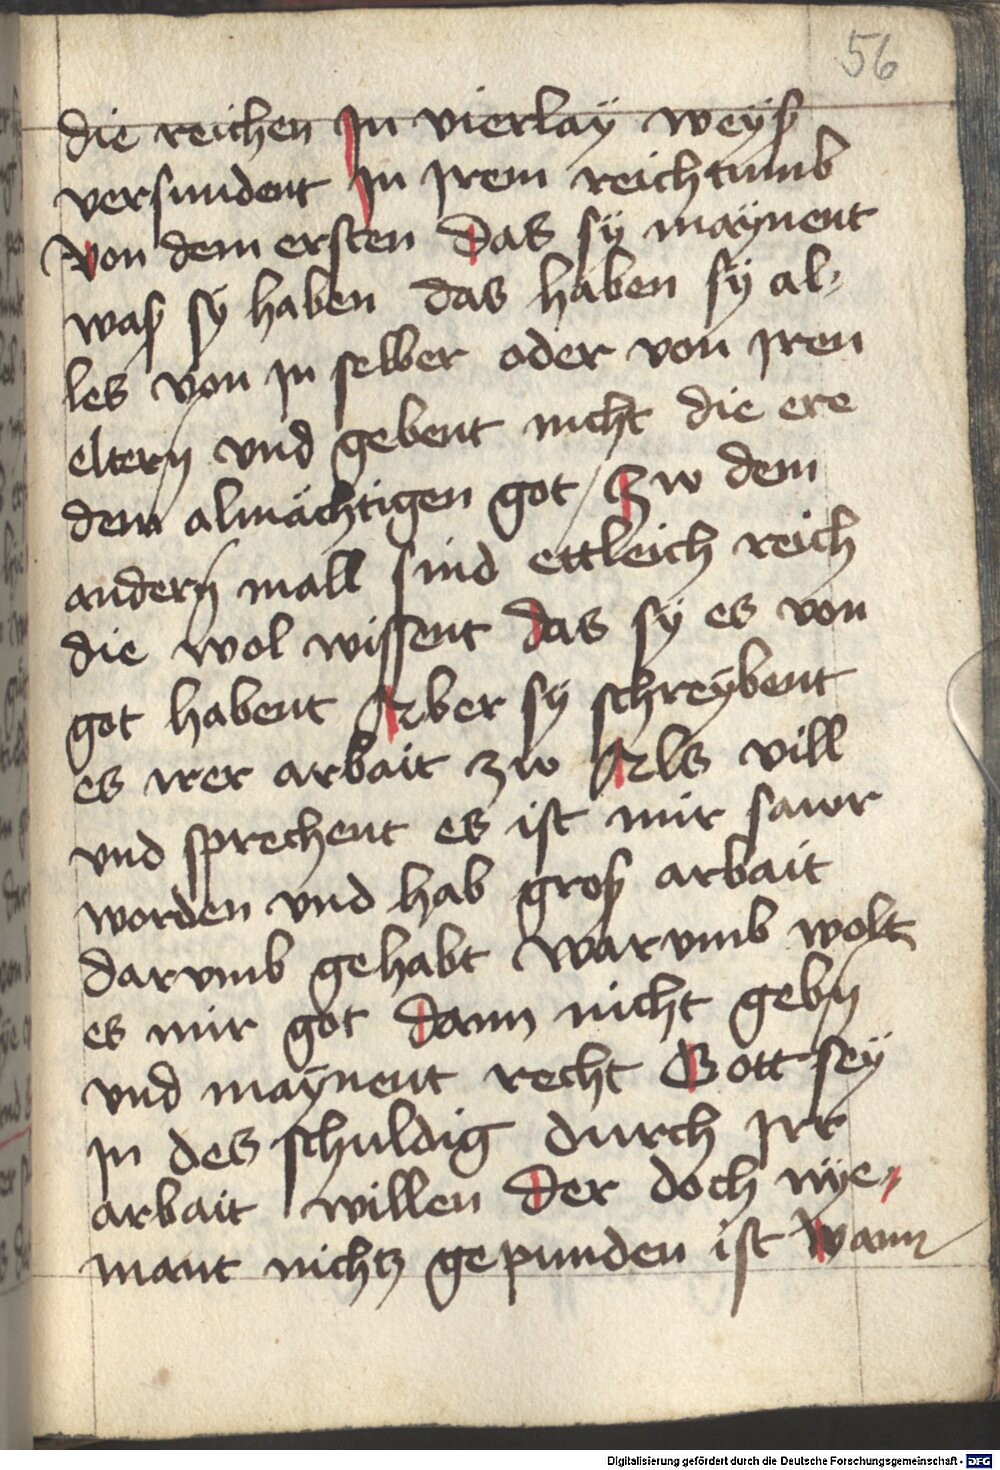 56
die reichen In vierlaÿ weÿß
versundent In Irem reichtumb
Von dem ersten Das sÿ maÿnent
waß sÿ haben das haben sÿ al⸗
les von in selber oder von Iren
elterñ vnd gebent nicht die ere
dem almächtigen got / Zw dem
anderñ mall sind ettleich reich
die wol wissent Das sÿ es von
got habent Aber sÿ schreÿbent
es irer arbait zw Als vill
vnd sprechent es ist mir sawr
worden vnd hab groß arbait
darvmb gehabt warvmb wolt
es mir got Dann nicht gebn
vnd maÿnent recht Gott seÿ
in des schuldig durch Irr
arbait willen Der doch nÿe⸗
mant nichtz gepunden ist Wann
Digitalisierung gefördert durch die Deutsche Forschungsgemeinschaft - DFG